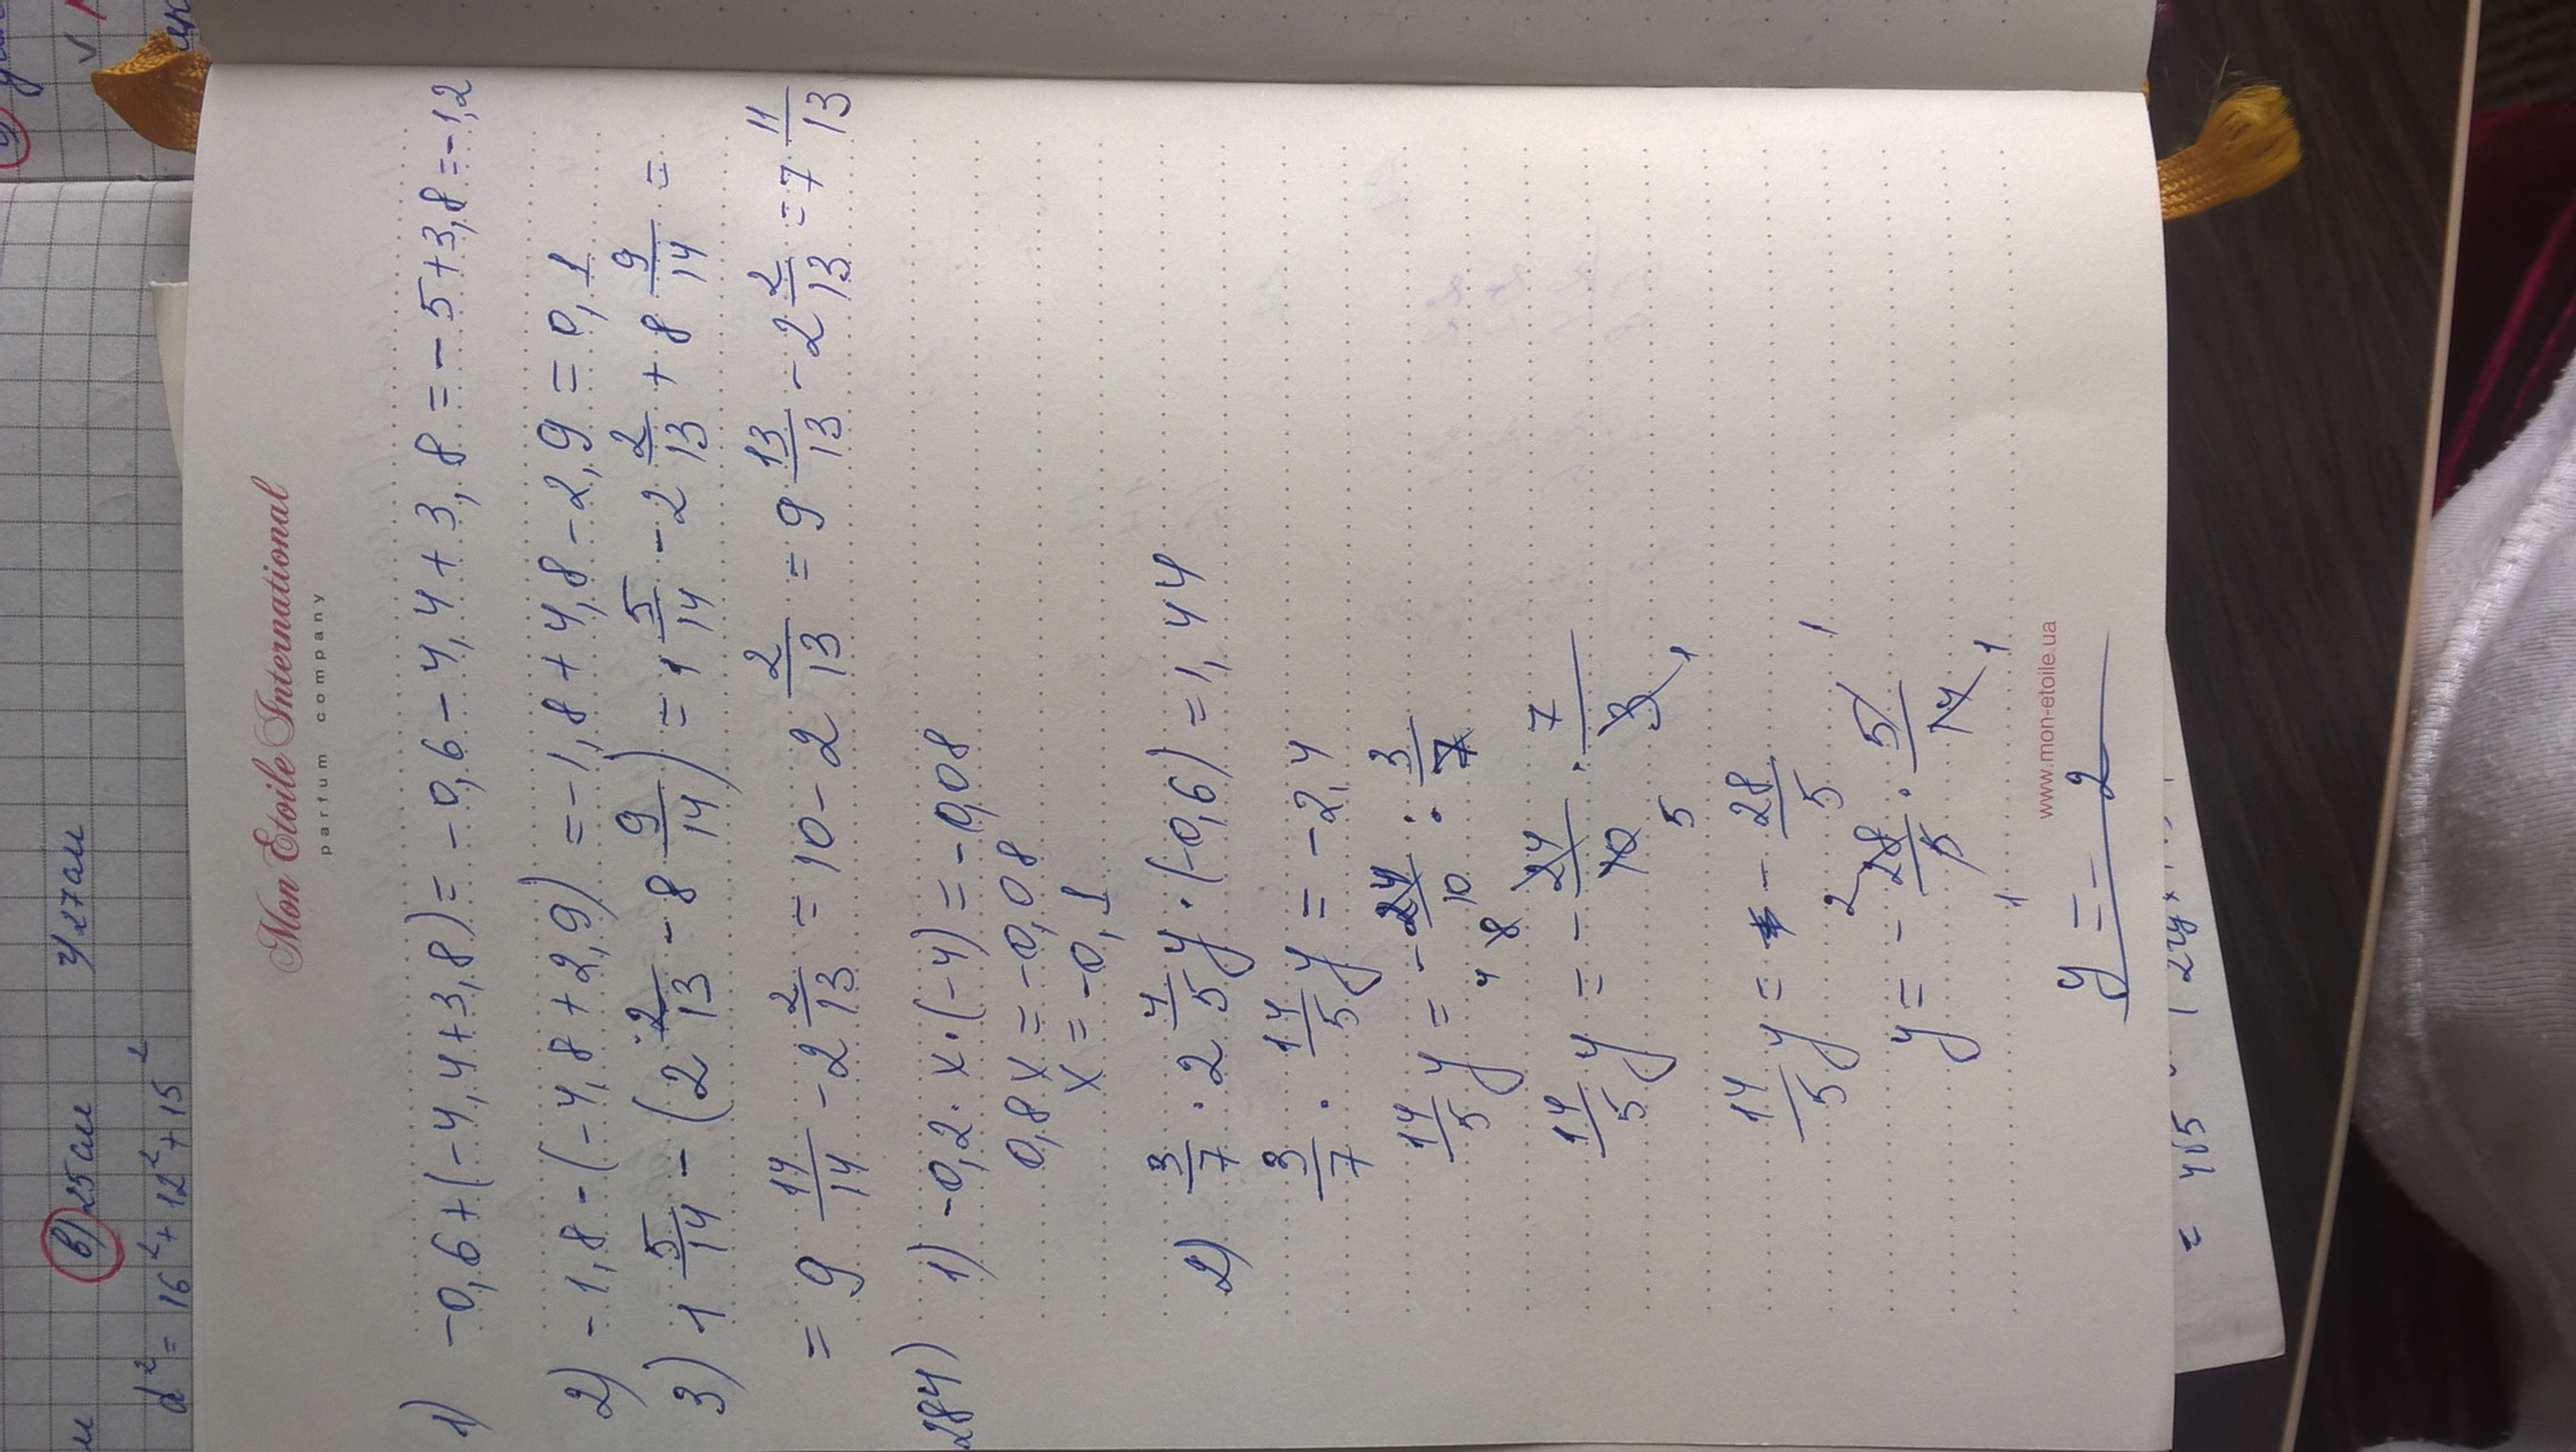 в) 25см у 27см
d² = 16² + 12² + 15²
Mon Etoile International
parfum company
1) -0,6+(-4,4+3,8)= -0,6-4,4+3,8=-5+3,8=-1,2
2) -1,8-(-4,8+2,9)=-1,8+4,8-2,9=0,1
3) 1 5/14 - (2 2/13 - 8 9/14) = 1 5/14 - 2 2/13 + 8 9/14 =
= 9 14/14 - 2 2/13 = 10 - 2 2/13 = 9 13/13 - 2 2/13 = 7 11/13
284) 1) -0,2·x·(-4)=-0,08
0,8x=-0,08
x=-0,1
2) 3/7 · 2 4/5 y·(-0,6)=1,44
3/7 · 14/5 y = -2,4
14/5 y = - 24/10 : 3/7
4 8
14/5 y = - 24/10 · 7/3
5 1
14/5 y = - 28/5
2 1
y = - 28/5 · 5/14
1 1
www.mon-etoile.ua
y = - 2